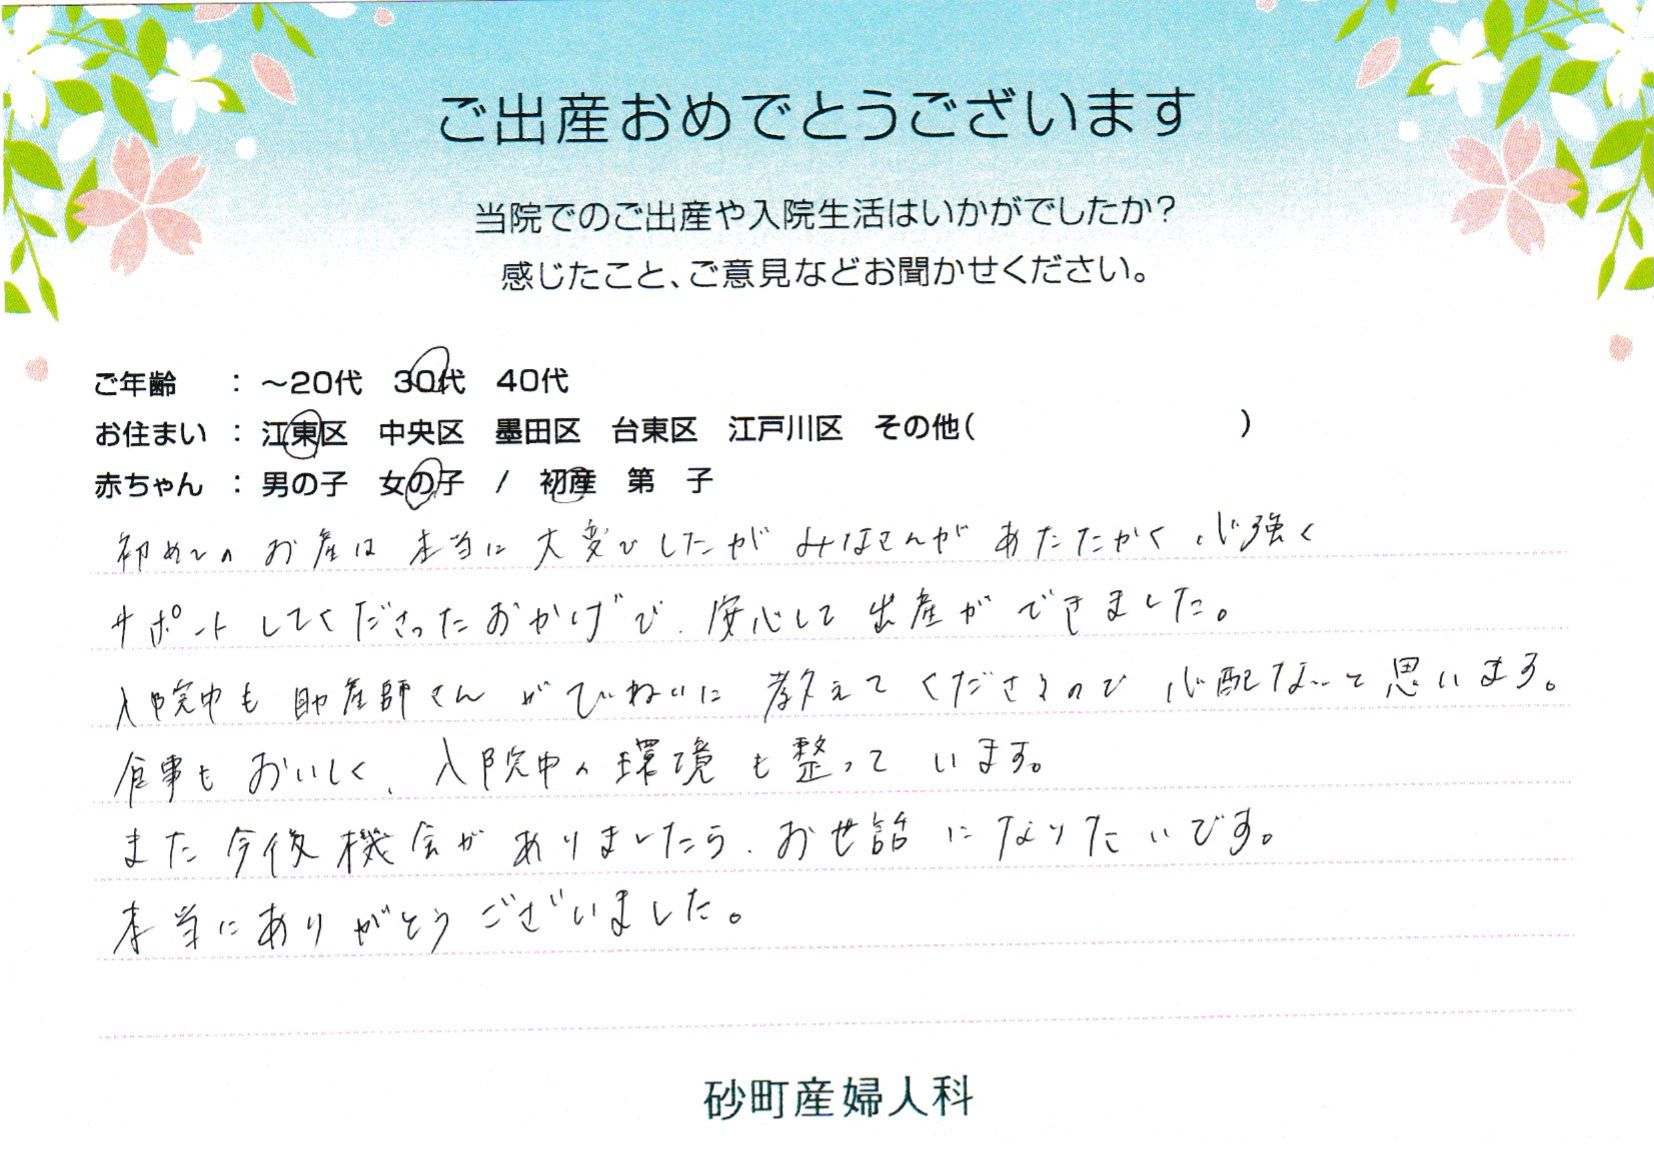 ご出産おめでとうございます
当院でのご出産や入院生活はいかがでしたか?
感じたこと、ご意見などお聞かせください。
ご年齢 : ～20代 30代 40代
お住まい : 江東区 中央区 墨田区 台東区 江戸川区 その他( )
赤ちゃん : 男の子 女の子 / 初産 第 子
初めてのお産は本当に大変でしたがみなさんがあたたかく心強く
サポートしてくださったおかげで、安心して出産ができました。
入院中も助産師さんがていねいに教えてくださるので心配ないと思います。
食事もおいしく、入院中の環境も整っています。
また今後機会がありましたら、お世話になりたいです。
本当にありがとうございました。
砂町産婦人科